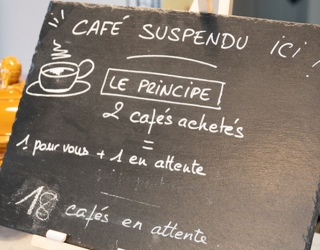 CAFÉ SUSPENDU ici !
LE PRINCIPE
2 cafés achetés
=
1 pour vous + 1 en attente
18 cafés en attente